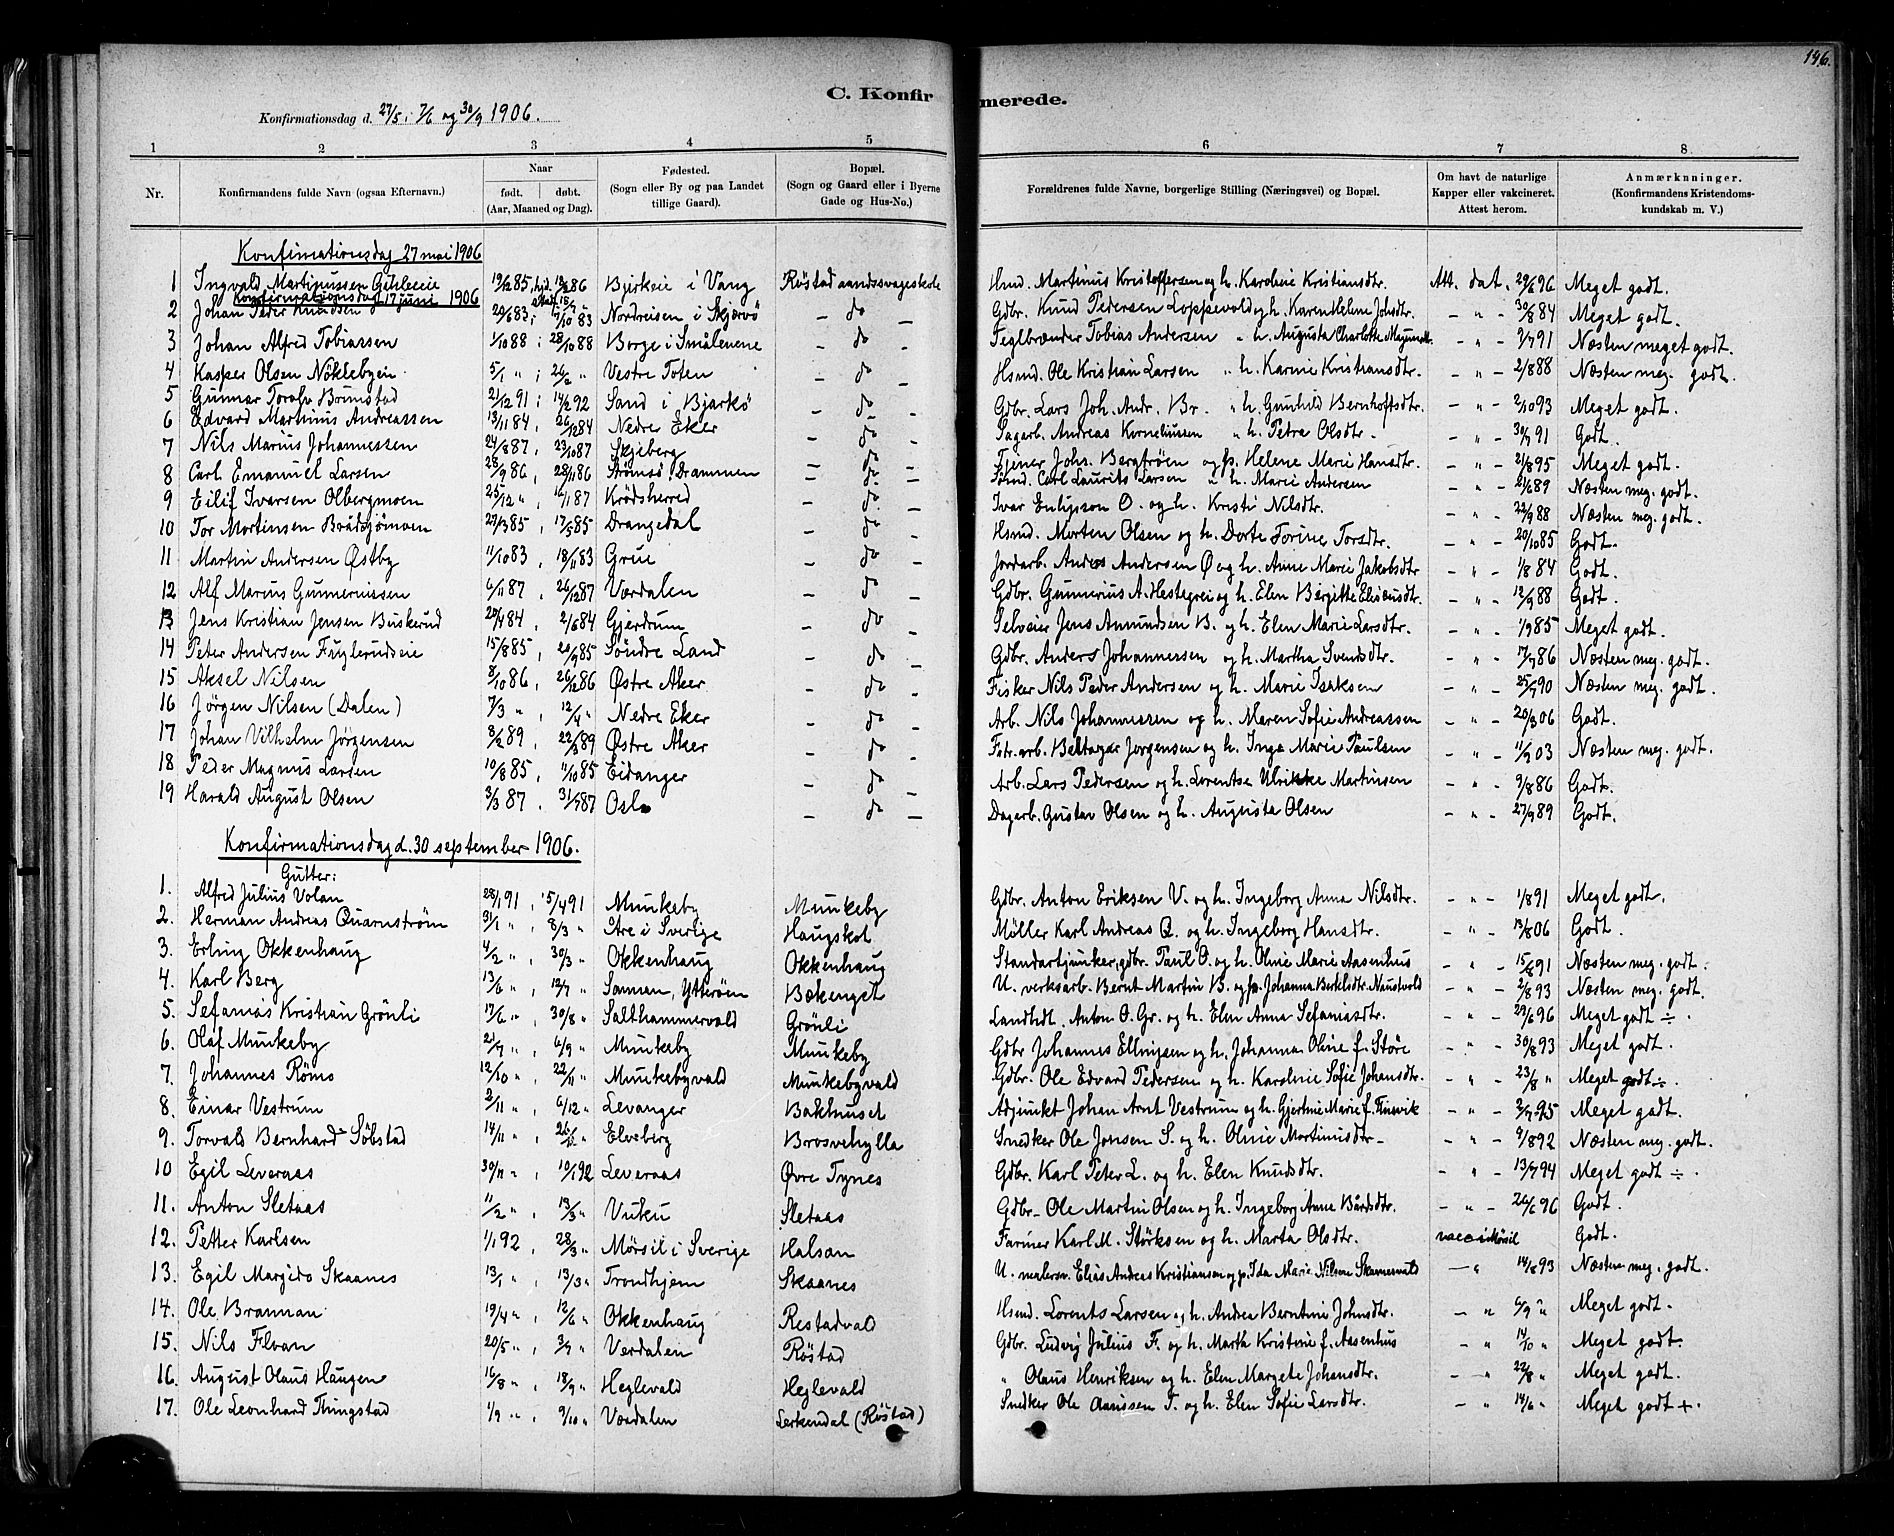 146.
C. Konfirmerede.
Konfirmationsdag d. 27/5, 17/6 og 30/9 1906.
1 2 3 4 5 6 7 8
Nr. Konfirmandens fulde Navn (ogsaa Efternavn.) Naar født. døbt. (Aar, Maaned og Dag). Fødested. (Sogn eller By og paa Landet tillige Gaard). Bopæl. (Sogn og Gaard eller i Byerne Gade og Hus-No.) Forældrenes fulde Navne, borgerlige Stilling (Næringsvei) og Bopæl. Om havt de naturlige Kapper eller vakcineret. Attest herom. Anmærkninger. (Konfirmandens Kristendomskundskab m. V.)
Konfirmationsdag 27 mai 1906
1 Ingvald Martinussen 19/12 85, Bjirkeie i Vang Røstad aandssvageskole Hmd. Martinius Kristoffersen og h. Karoline Kristiansdtr. Att. dat. 29/6 96 Meget godt.
Konfirmationsdag 17 juni 1906
2 Johan Peder Knudsen 20/6 83; 7/10 83 Nordreisen i Skjærvö - do - Gdbr. Knud Pedersen Loppevold og h. Karen Helene Johsdtr. - " - 30/8 84 Meget godt.
3 Johan Alfred Tobiassen 1/10 88; 28/10 88 Borge i Smålenene - do - Teglbrænder Tobias Andersen " h. Augusta Charlotte - " - 9/7 91 Næsten meget godt.
4 Kasper Olsen Nöklebyein 5/1 "; 26/2 " Vestre Toten - do - Hsmd. Ole Kristian Larsen " h. Karine Kristiansdtr. - " - 2/8 88 Næsten meg. godt.
5 Gunnar Toralv Brunstad 21/12 91; 14/2 92 Sand i Bjarkö - do - Gdbr. Lars Joh. Andr. Br. " h. Gunhild Bernhoftsdtr. - " - 2/10 93 Meget godt.
6 Edvard Martinius Andreassen 13/11 84, 26/12 84 Nedre Eker - do - Sagarb. Andreas Korneliussen " h. Petra Olsdtr. - " - 30/7 91 Godt.
7 Nils Marius Johannessen 24/8 87, 23/10 87 Skjeberg - do - Tjener Johs. Bergfröen og p. Helene Marie Hansdtr. - " - 21/8 95 Meget godt.
8 Carl Emanuel Larsen 28/9 86, 28/11 86 Strömsö, Drammen - do - Carl Laurits Larsen " h. Marie Andersen - " - 21/6 89 Næsten meg. godt.
9 Eilif Ivarsen Olbergmoen 25/12 ", 16/1 87 Krödsherred - do - Ivar Enligson O. og h. Kristi Nilsdtr. - " - 22/9 88 Næsten meg. godt.
10 Tor Mortensen 27/3 85, 17/5 85 Drangedal - do - Hsmd. Morten Olsen og h. Dorte Torine Torsdtr. - " - 20/10 85 Godt.
11 Martin Andersen Østby 11/10 83, 18/11 83 Grue - do - Jordarb. Anders Andersen Ø og h. Anne Marie Jakobsdtr - " - 1/8 84 Godt.
12 Alf Marius Gunneriussen 6/11 87, 26/12 87 Værdalen - do - Gdbr. Gunnerius A. Hestegrei og h. Elen Birgitte Eliseusdtr. - " - 12/9 88 Godt.
13 Jens Kristian Jensen Buskerud 20/4 84, 2/6 84 Gjerdrum - do - Selveier Jens Amundsen B. og h. Elen Marie Larsdtr. - " - 1/9 85 Meget godt.
14 Peter Andersen Fuglerudseie 15/8 85, 20/9 85 Söndre Land - do - Gdbr. Anders Johannersen og h. Martha Svendsdtr. - " - 17/7 86 Næsten meg. godt.
15 Aksel Nilsen 8/10 86, 26/12 86 Østre Aker - do - Fisker Nils Peder Andersen og h. Marie Isaksen - " - 25/7 90 Næsten meg. godt.
16 Jörgen Nilsen (Dalen) 7/3 ", 12/4 " Nedre Eker - do - Arb. Nils Johannessen og h. Maren Sofie Andreassen - " - 20/3 06 Godt.
17 Johan Vilhelm Jörgensen 3/2 89, 22/3 89 Østre Aker - do - arb. Baltazar Jorgensen og h. Inga Marie Paulsen - " - 11/9 03 Næsten meg. godt.
18 Peder Magnus Larsen 10/8 85, 11/10 85 Eidanger - do - Arb. Lars Pedersen og h. Lorentse Ulrikke Martinsen - " - 9/8 86 Godt.
19 Harald August Olsen 3/3 87, 31/7 87 Oslo - do - Dagarb. Gustav Olsen og h. Augusta Olsen - " - 27/9 89 Godt.
Konfirmationsdag d. 30 september 1906.
Gutter:
1. Alfred Julius Volan 28/1 91, 5/4 91 Munkeby Munkeby Gdbr. Anton Eriksen V. og h. Ingeborg Anna Nilsdtr. - " - 1/8 91 Meget godt.
2. Herman Andreas Quarnström 31/1 ", 8/3 " Åre i Sverige Haugskot Møller Karl Andreas Q. og h. Ingeborg Hansdtr. - " - 13/8 06 Godt.
3. Erling Okkenhaug 4/2 ", 30/3 " Okkenhaug Okkenhaug Standartjunker, gdbr. Paul O. og h. Oline Marie Aasenhus - " - 15/8 91 Næsten meg. godt.
4. Karl Berg 13/6 ", 12/7 " Sannan, Ytterøen Bækenget U. verksarb. Bernt Martin B. og p. Johanna Naustvold - " - 2/8 93 Næsten meg. godt.
5. Sefanias Kristian Grönli 17/6 ", 30/8 " Salthammervald Grönli Landhdl. Anton O. Gr. og h. Elen Anna Sefaniasdtr. - " - 29/6 96 Meget godt ÷.
6. Olaf Munkeby 21/7 ", 6/9 " Munkeby Munkeby Gdbr Johannes Ellingsen og h. Johanna Oline f. Störe - " - 30/8 93 Meget godt.
7. Johannes Römo 12/10 ", 22/11 " Munkebyvald Munkebyvald Gdbr. Ole Edvard Pedersen og h. Karoline Sofie Johansdtr. - " - 23/8 " Meget godt ÷.
8. Einar Vestrum 2/11 ", 6/12 " Levanger Bakhuset Adjunkt Johan Arnt Vestrum og h. Gjertine Marie f. Finsvik - " - 2/7 95 Meget godt.
9. Torvald Bernhard Söbstad 14/11 ", 26/12 " Elveberg Brosvehylla Snedker Ole Jonsen S. og h. Oline Martinusdtr - " - 9/8 92 Næsten meg. godt.
10 Egil Leveraas 30/11 ", 10/1 92 Leveraas Øvre Tynes Gdbr. Karl Peter L. og h. Elen Knudsdtr. - " - 13/7 94 Meget godt ÷.
11. Anton Sletaas 11/2 ", 13/3 " Vuku Sletaas Gdbr. Ole Martin Olsen og h. Ingeborg Anna Bårdsdtr. - " - 26/6 96 Godt.
12. Petter Karlsen 1/1 92, 28/3 " Mörsil i Sverige Halsan Farmer Karl M. Störksen og h. Marta Olsdtr. vacc i Mörsil Godt.
13. Egil Margido Skaanes 13/1 ", 13/3 " Trondhjem Skaanes U. malersv. Elias Andreas Kristiansen og p. Ida Marie Nilsen Skaanesvald - " 14/8 93 Næsten meg. godt.
14. Ole Brannan 19/4 ", 12/6 " Okkenhaug Restadvald Hsmd. Lorents Larsen og h. Andrea Berntine Johnsdtr. - " 6/9 " Meget godt.
15. Nils Floan 20/5 ", 3/7 " Verdalen Røstad Gdbr. Ludvig Julius F. og h. Marta Kristine f. Aasenhus - " 14/10 " Meget godt.
16. August Olaus Haugen 16/8 ", 18/9 " Heglevald Heglevald " Olaus Henriksen og h. Elen Margrete Johansdtr. - " 22/8 " Meget godt.
17. Ole Leonhard Thingstad 1/9 ", 9/10 " Værdalen Lerkendal (Røstad) Snedker Ole Aanssen T. og h. Elen Sofie Larsdtr. - " 14/6 " Meget godt +.